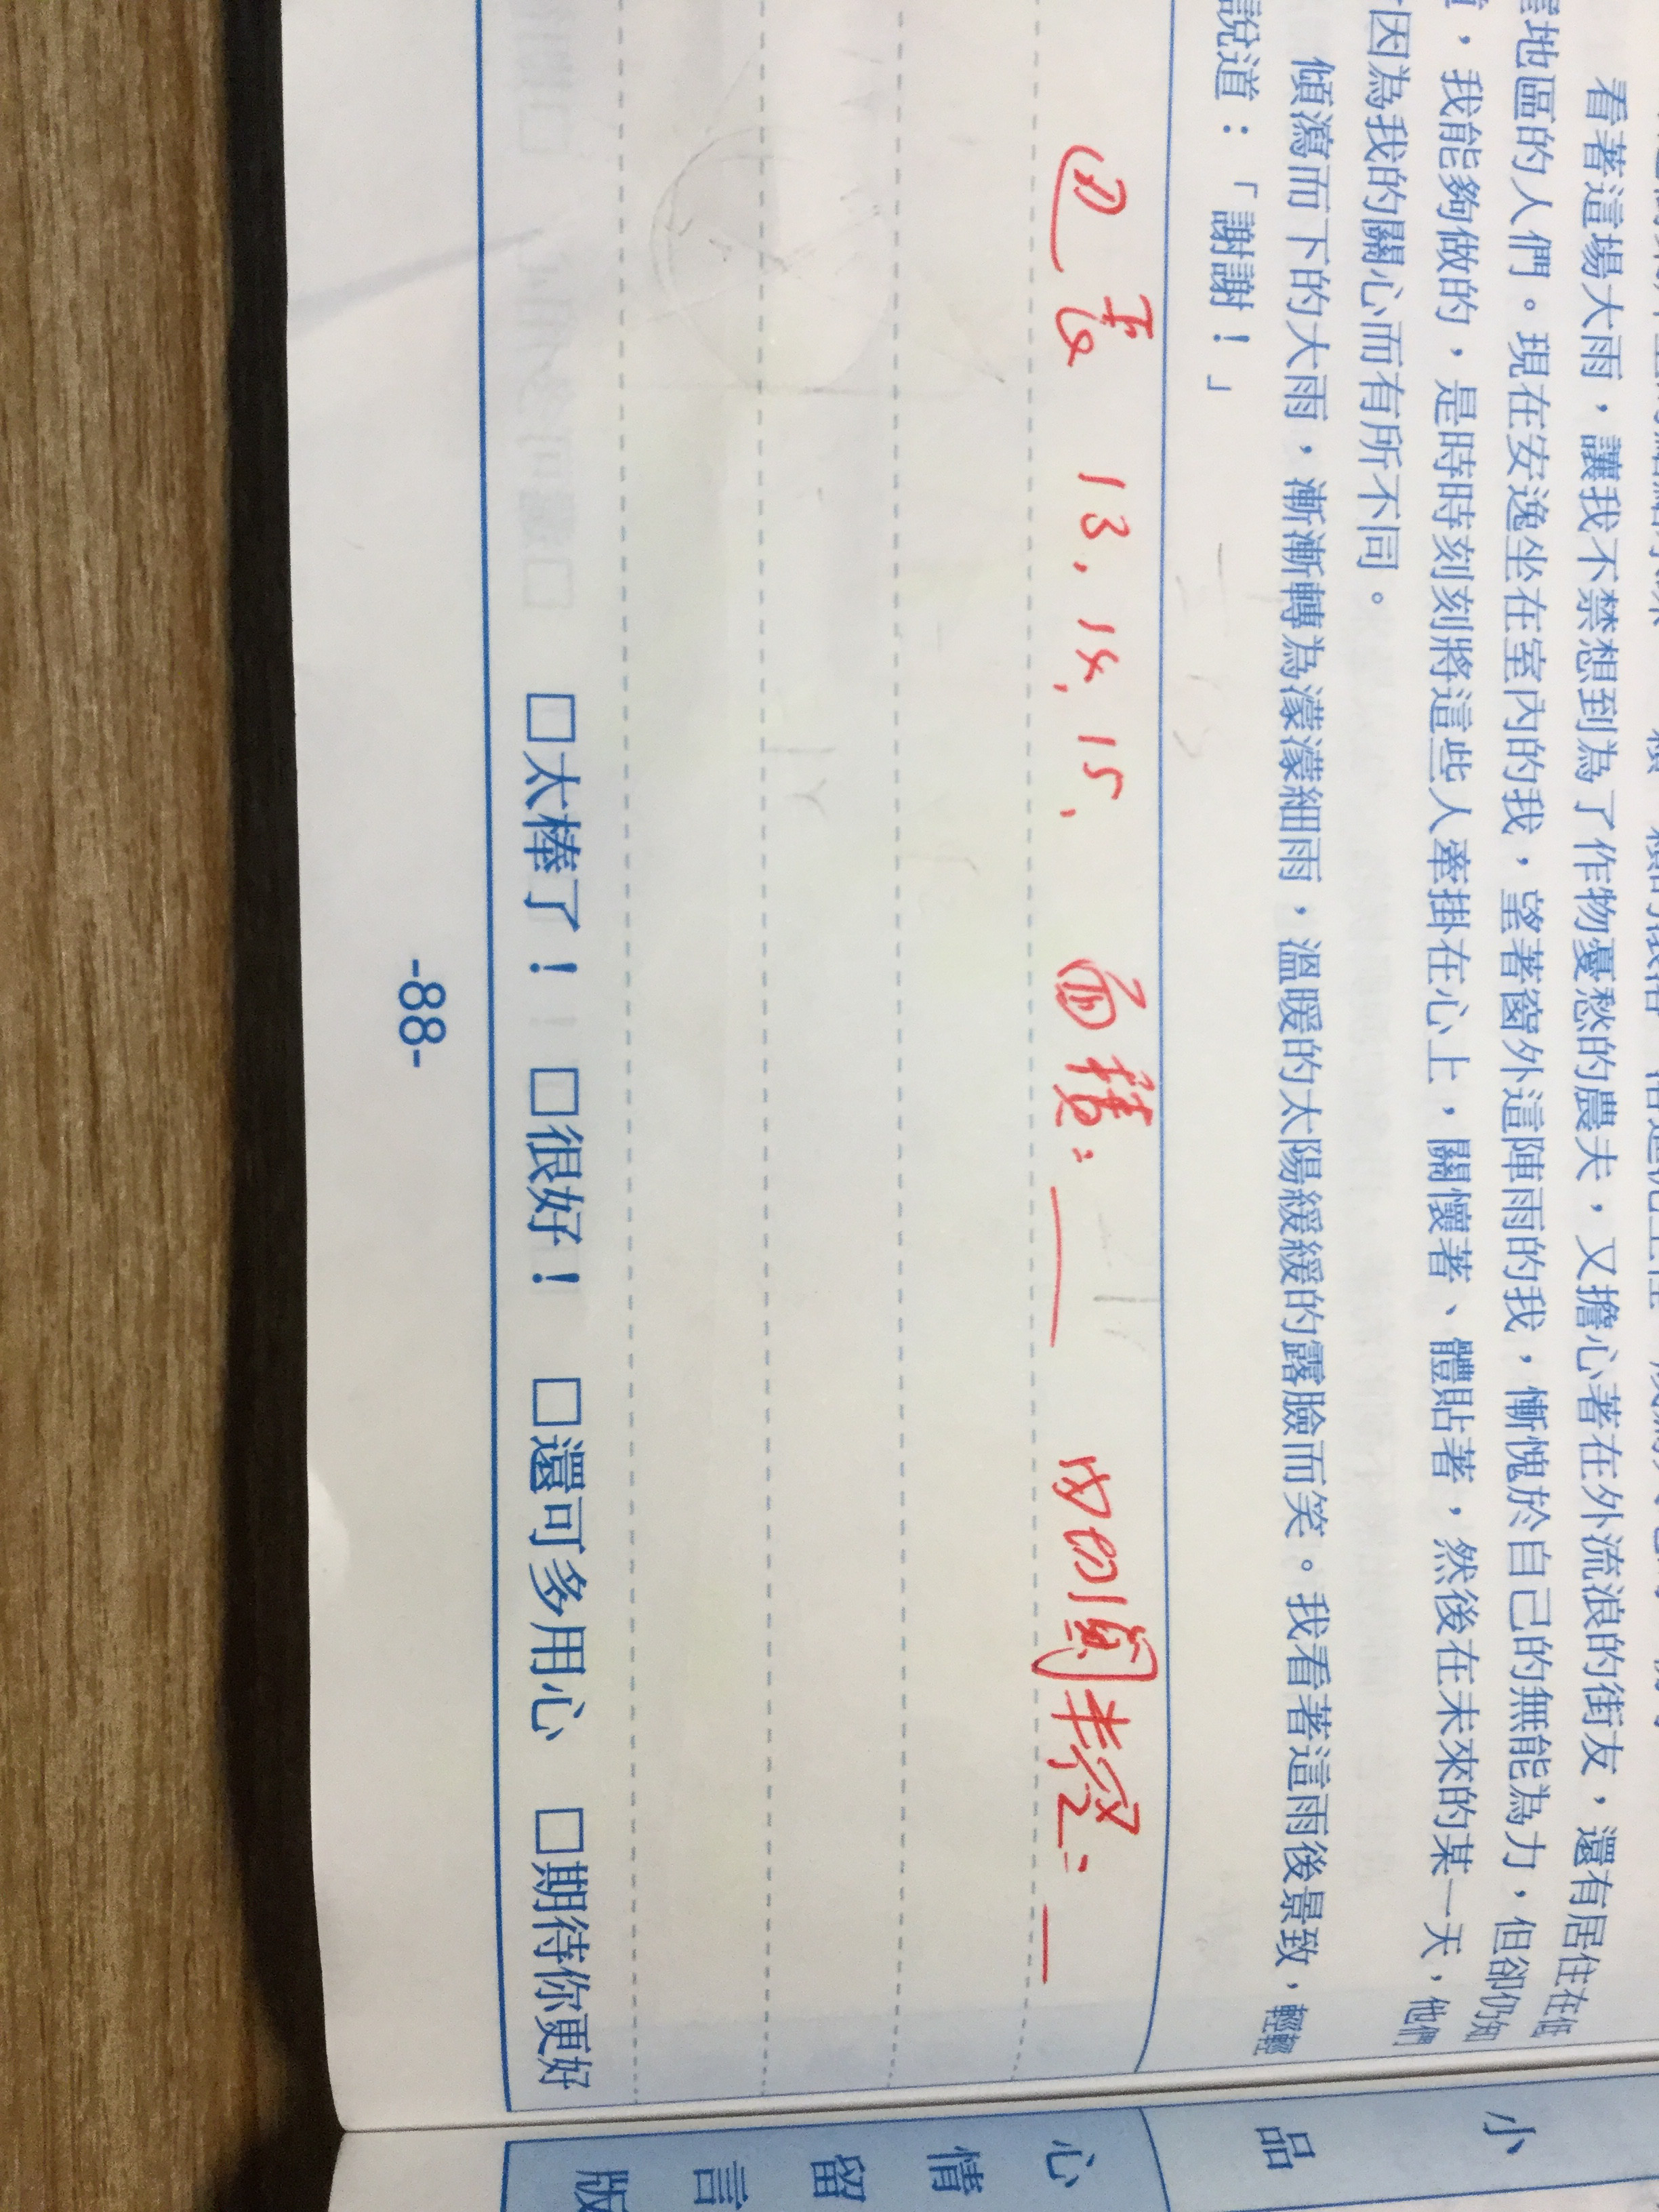 看著這場大雨，讓我不禁想到為了作物憂愁的農夫，又擔心著在外流浪的街友，還有居住在低
地區的人們。現在安逸坐在室內的我，望著窗外這陣雨的我，慚愧於自己的無能為力，但卻仍知
，我能夠做的，是時時刻刻將這些人牽掛在心上，關懷著、體貼著，然後在未來的某一天，他們
因為我的關心而有所不同。
傾瀉而下的大雨，漸漸轉為濛濛細雨，溫暖的太陽緩緩的露臉而笑。我看著這雨後景致，輕輕
說道：「謝謝！」
13、14、15、 面積：__ 內切圓半徑：__
□太棒了！ □很好！ □還可多用心 □期待你更好
-88-
小
品
心
情
留
言
版